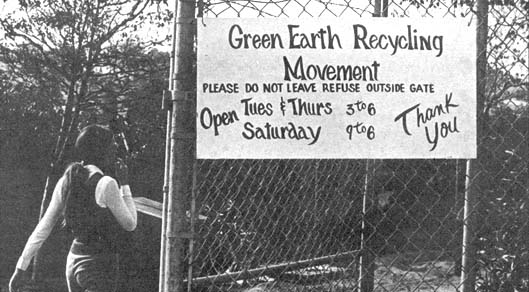 Green Earth Recycling
Movement
PLEASE DO NOT LEAVE REFUSE OUTSIDE GATE
Open Tues & Thurs 3 to 6
Saturday 9 to 6
Thank
You